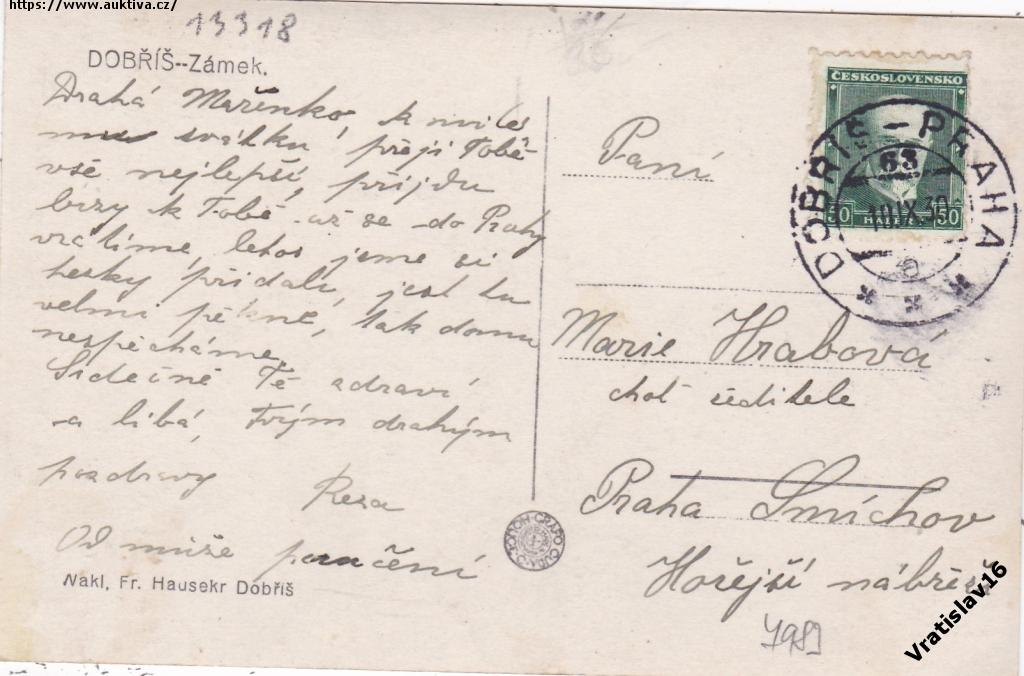 https://www.auktiva.cz/
13318
DOBŘÍŠ--Zámek.
Drahá Mařenko, k
svátku přeji Tobě
vše nejlepší, přijdu
brzy k Tobě až se do Prahy
vrátíme, letos jsme si
hezky přidali, jest tu
velmi pěkně, tak domu
nespěcháme.
Srdečně Tě zdraví
a líbá, Tvým drahým
pozdravy Resa
Od poručení
Nakl. Fr. Hausekr Dobříš
ČESKOSLOVENSKO
50 HALÉŘ 50
DOBŘÍŠ-PRAHA
63
10.IX.30
Paní
Marie Hrabová
choť ředitele
Praha Smíchov
Hořejší nábřeží
7989
Vratislav16